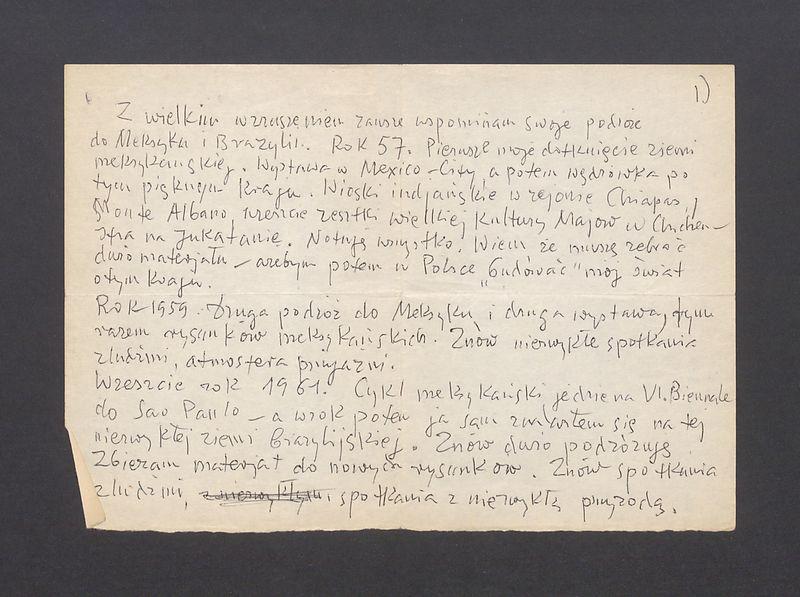 1)
Z wielkim wzruszeniem zawsze wspominam swoje podróże
do Meksyku i Brazylii. Rok 57. Pierwsze moje dotknięcie ziemi
meksykańskiej. Wystawa w Mexico-City a potem wędrówka po
tym pięknym kraju. Wioski indjańskie w rejonie Chiapas,
Monte Albano, wreszcie resztki wielkiej Kultury Majów w Chichen-
Itza na Jukatanie. Notuję wszystko. Wiem że muszę zebrać
dużo materjału – ażebym potem w Polsce "budować" mój świat
o tym kraju.
Rok 1959. Druga podróż do Meksyku i druga wystawa, tym
razem rysunków meksykańskich. Znów niezwykłe spotkania
z ludźmi, atmosfera przyjaźni.
Wreszcie rok 1961. Cykl meksykański jedzie na VI. Biennale
do Sao Paulo – a w rok potem ja sam znalazłem się na tej
niezwykłej ziemi brazylijskiej. Znów dużo podróżuję.
Zbieram materjał do nowych rysunków. Znów spotkania
z ludźmi, i spotkania z niezwykłą przyrodą.